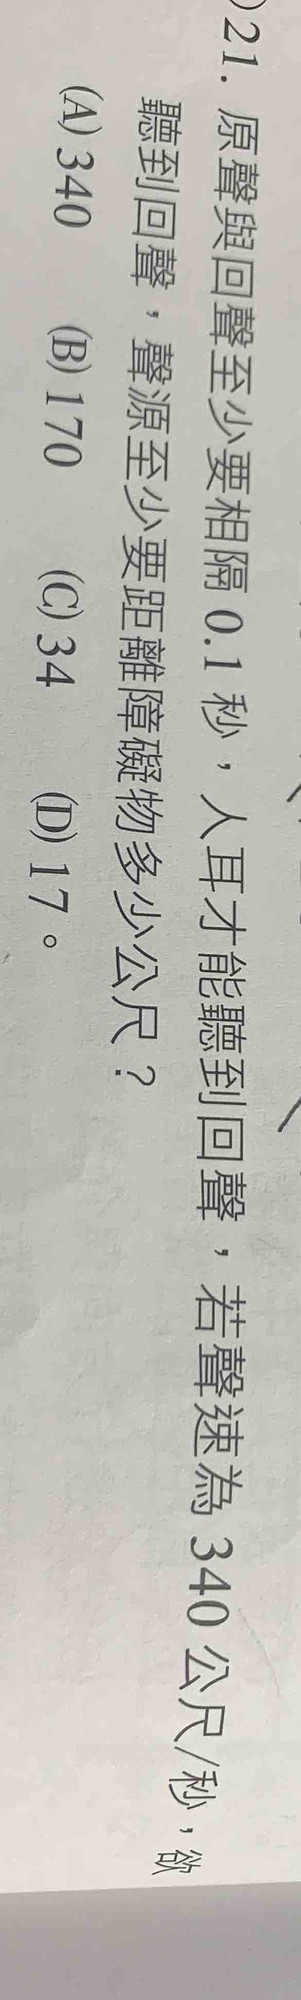 )21. 原聲與回聲至少要相隔 0.1 秒，人耳才能聽到回聲，若聲速為 340 公尺/秒，欲
聽到回聲，聲源至少要距離障礙物多少公尺？
(A) 340 (B) 170 (C) 34 (D) 17。